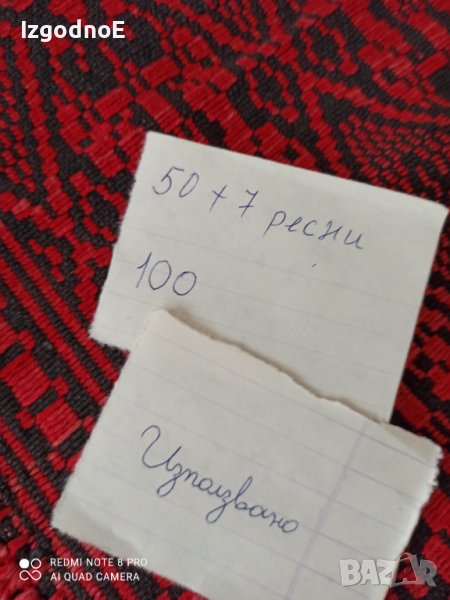 IzgodnoE
50 + 7 ресни
100
Използвано
REDMI NOTE 8 PRO
AI QUAD CAMERA
BAZAR